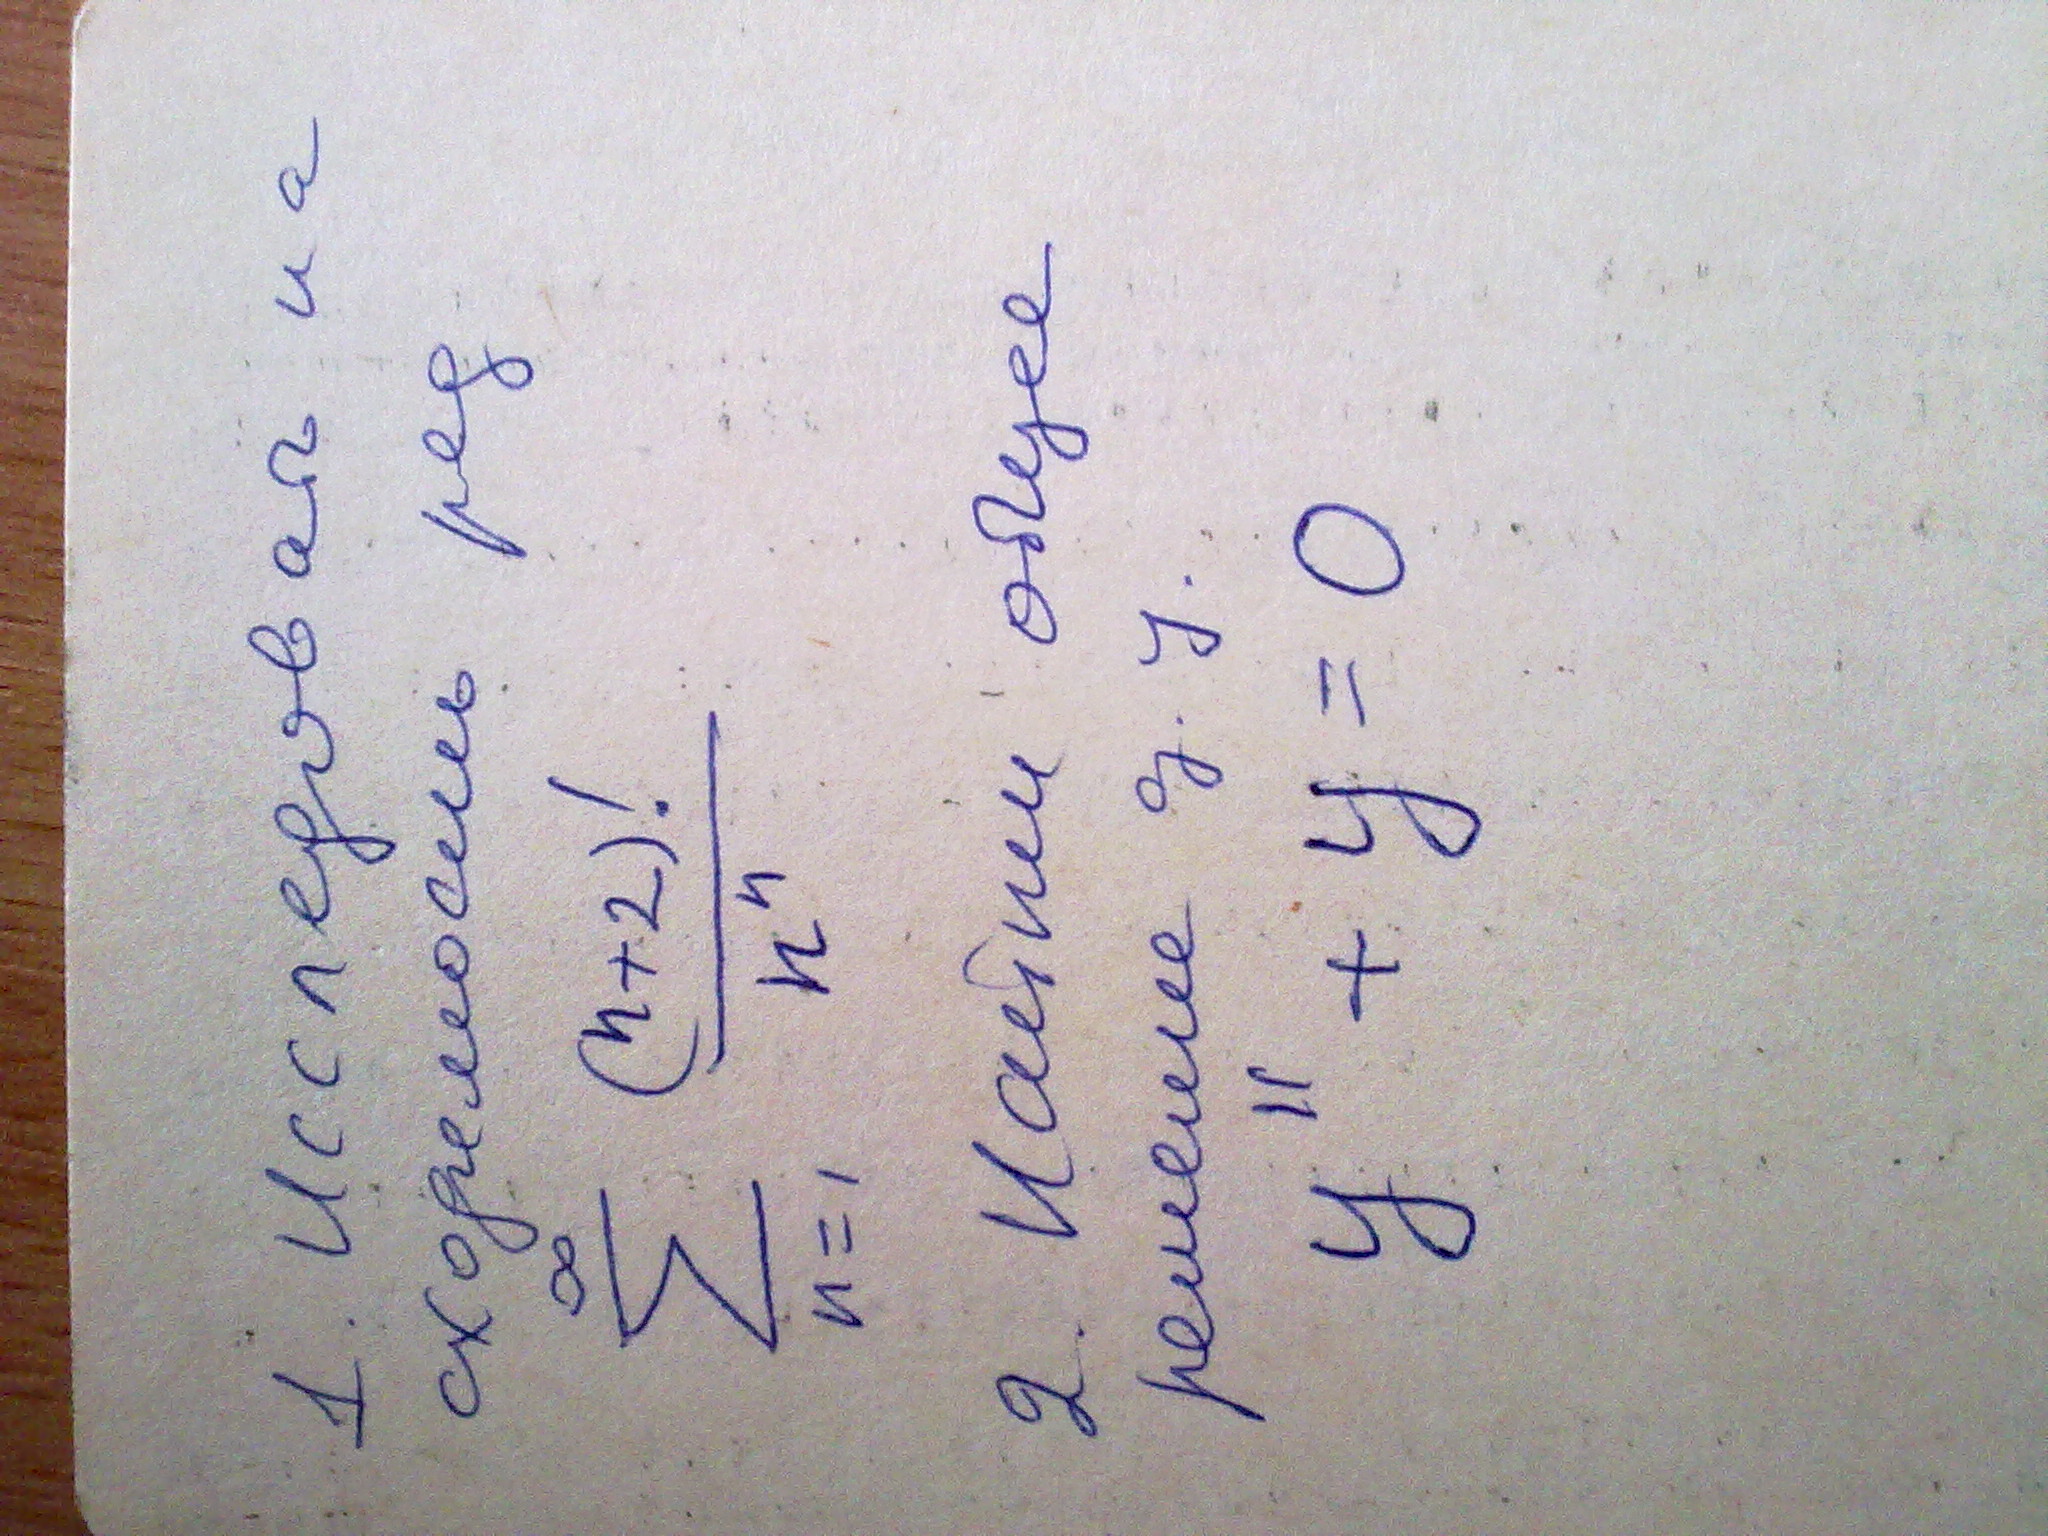 1. Исследоват на
сходемость ряд
∞
∑ (n+2)!
n=1 nⁿ
2. Найти общее
решение д.у.
y" + y = 0